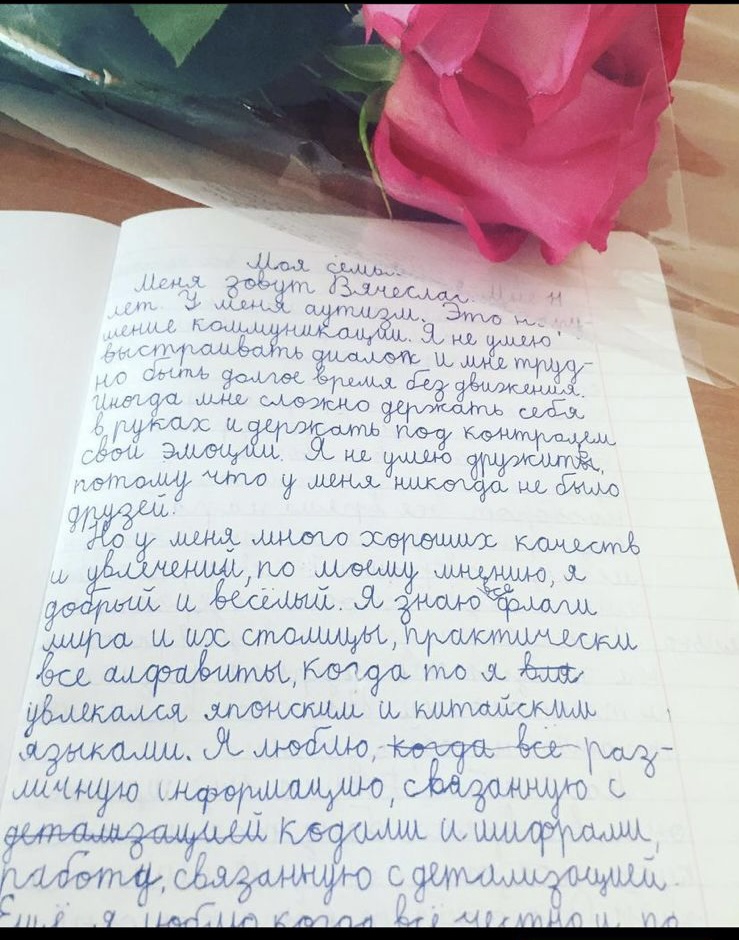 Моя семья
Меня зовут Вячеслав.
лет. У меня аутизм. Это
шение коммуникации. Я не умею
выстраивать диалог и мне труд-
но быть долгое время без движения.
Иногда мне сложно держать себя
в руках и держать под контролем
свои эмоции. Я не умею дружить,
потому что у меня никогда не было
друзей.
Но у меня много хороших качеств
и увлечений, по моему мнению, я
добрый и весёлый. Я знаю все флаги
мира и их столицы, практически
все алфавиты, когда то я
увлекался японским и китайским
языками. Я люблю, когда всё раз-
личную информацию, связанную с
детализацией кодами и шифрами,
работу, связанную с детализацией.
Ещё я люблю когда всё честно и по